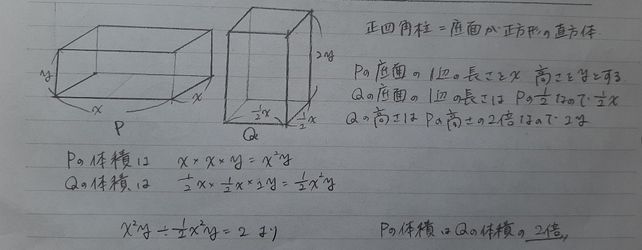 正四角柱＝底面が正方形の直方体
Pの底面の1辺の長さをx 高さをyとする
Qの底面の1辺の長さはPの1/2なので 1/2x
Qの高さはPの高さの2倍なので 2y
y
x
x
P
2y
1/2x
1/2x
Q
Pの体積は x×x×y＝x²y
Qの体積は 1/2x×1/2x×2y＝1/2x²y
x²y÷1/2x²y＝2 より Pの体積はQの体積の 2倍